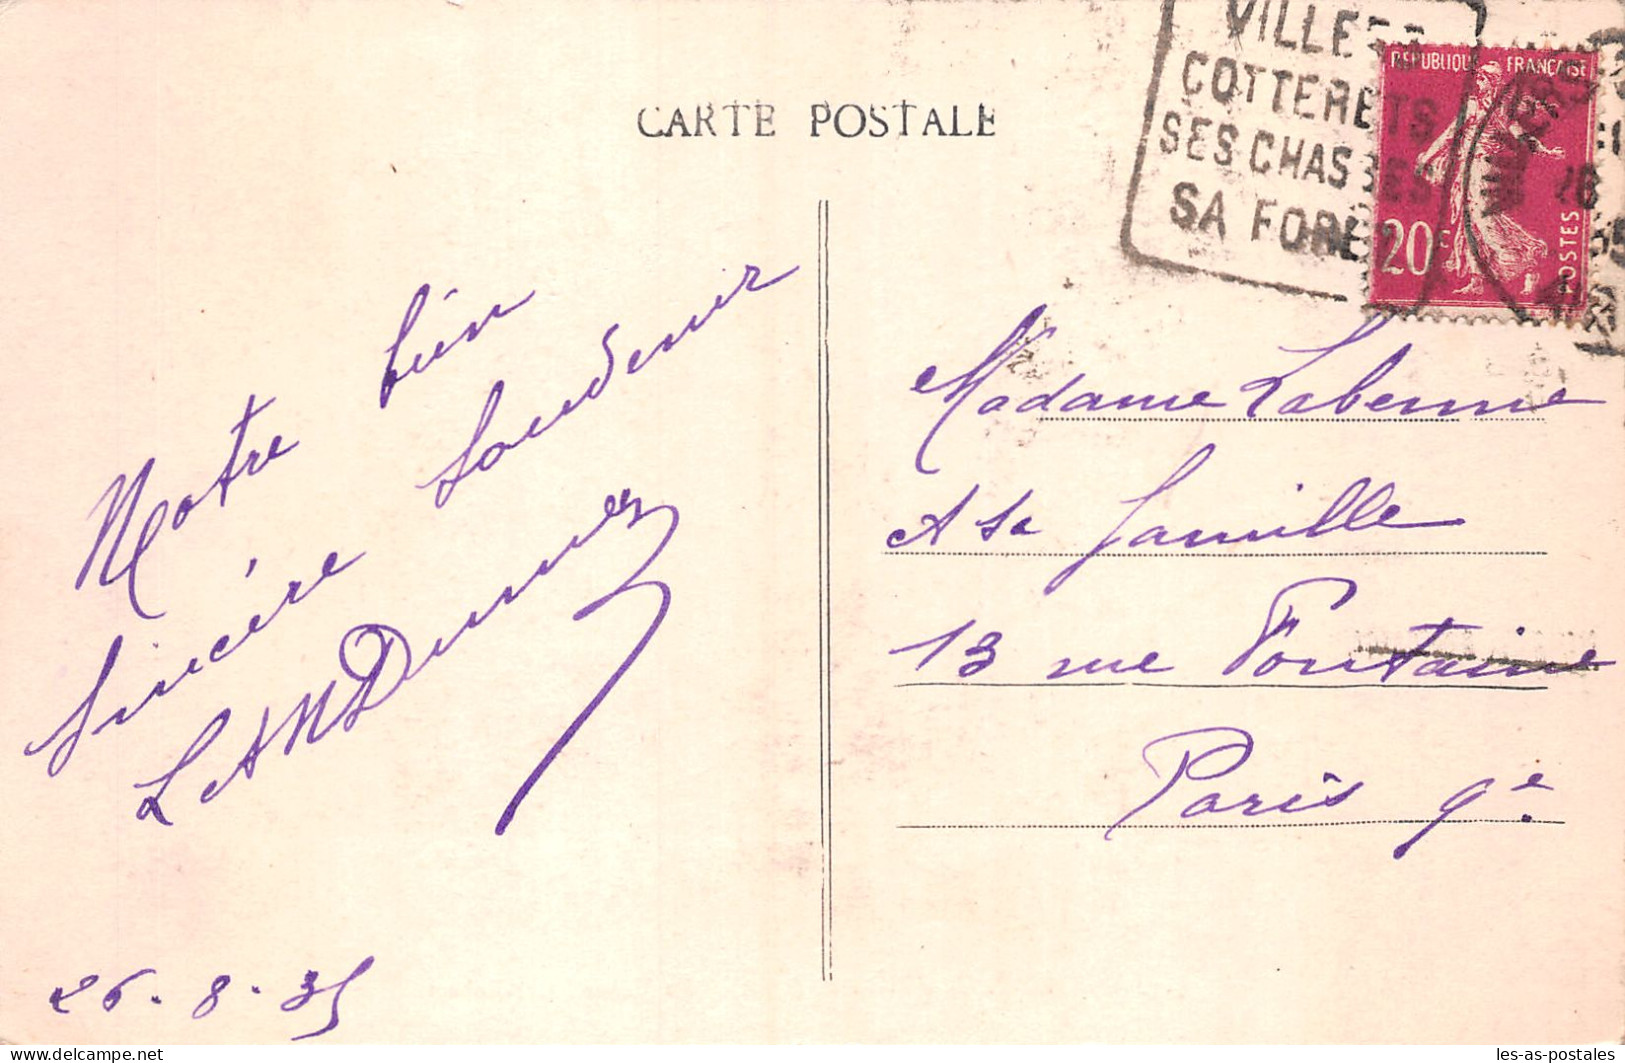 CARTE POSTALE
VILLERS
COTTERETS
SES CHASSES
SA FORÊT
RÉPUBLIQUE FRANÇAISE
20c
POSTES
Notre bien
sincère souvenir
26.8.35
Madame Labenne
et sa famille
13 rue Fontaine
Paris 9e
les-as-postales